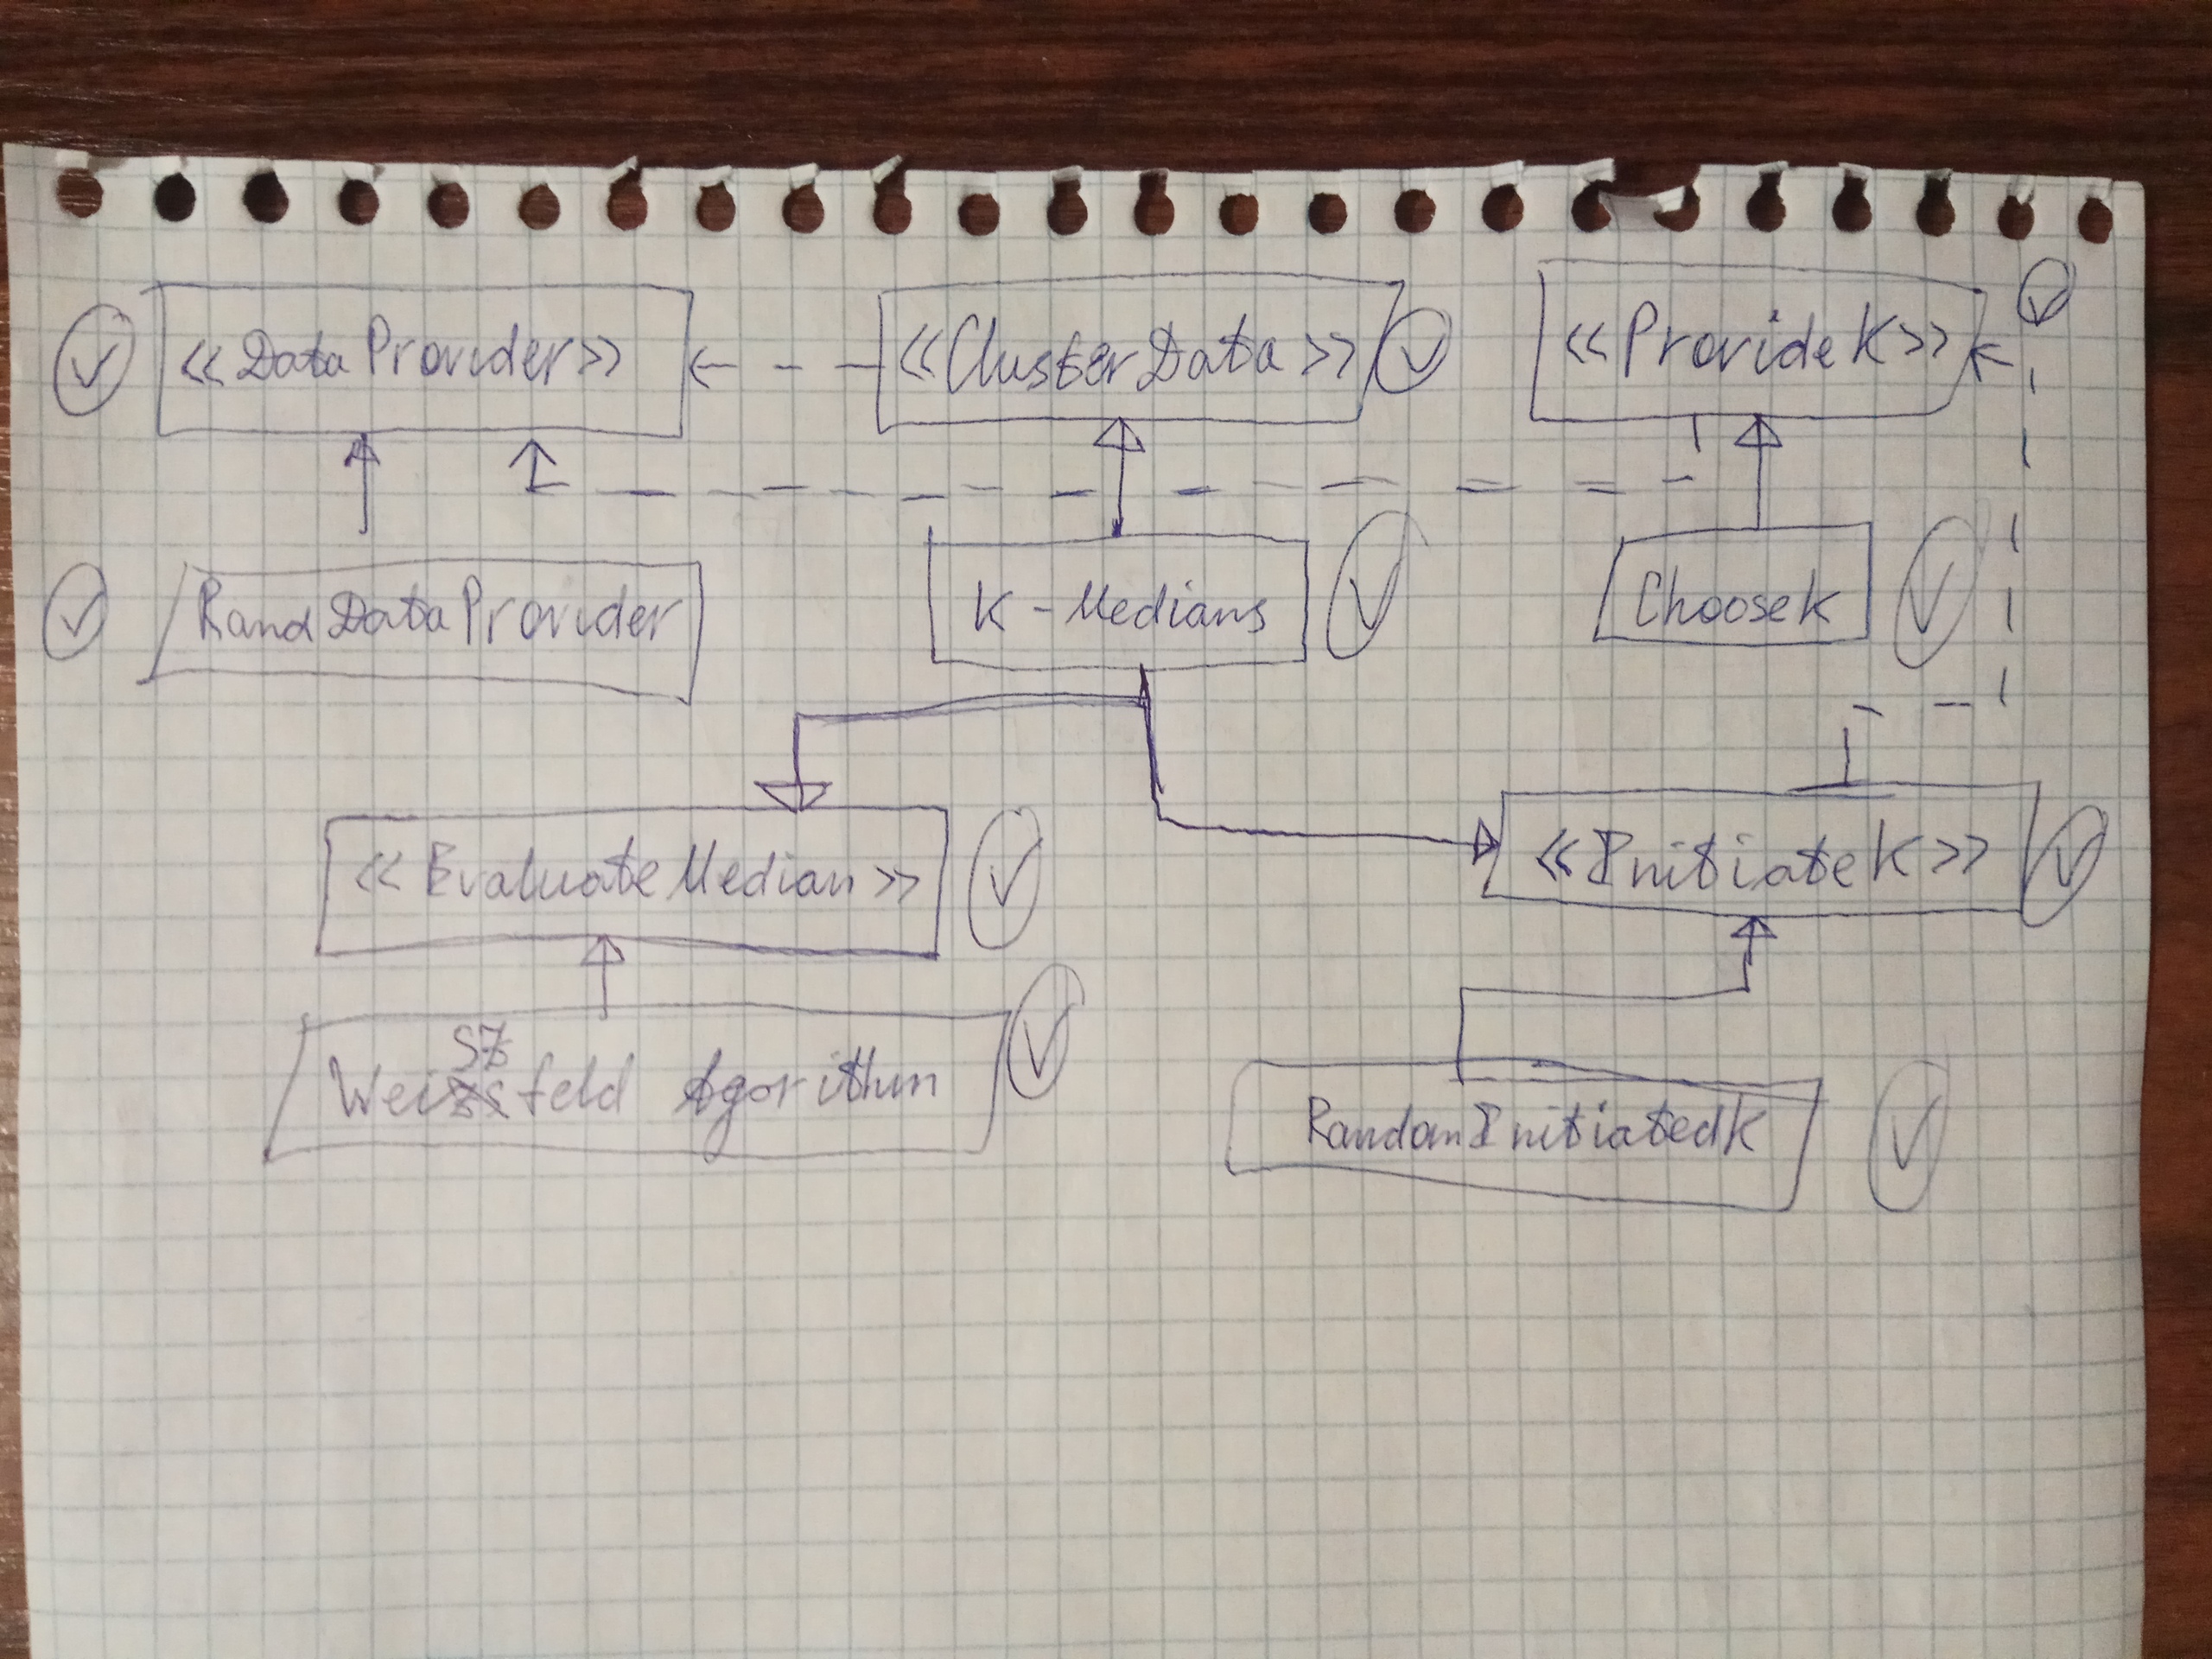 <<DataProvider>>
<<ClusterData>>
<<ProvideK>>
RandDataProvider
K-Medians
ChooseK
<<EvaluateMedian>>
<<InitiateK>>
Weiszfeld Agorithm
RandomInitiatedK